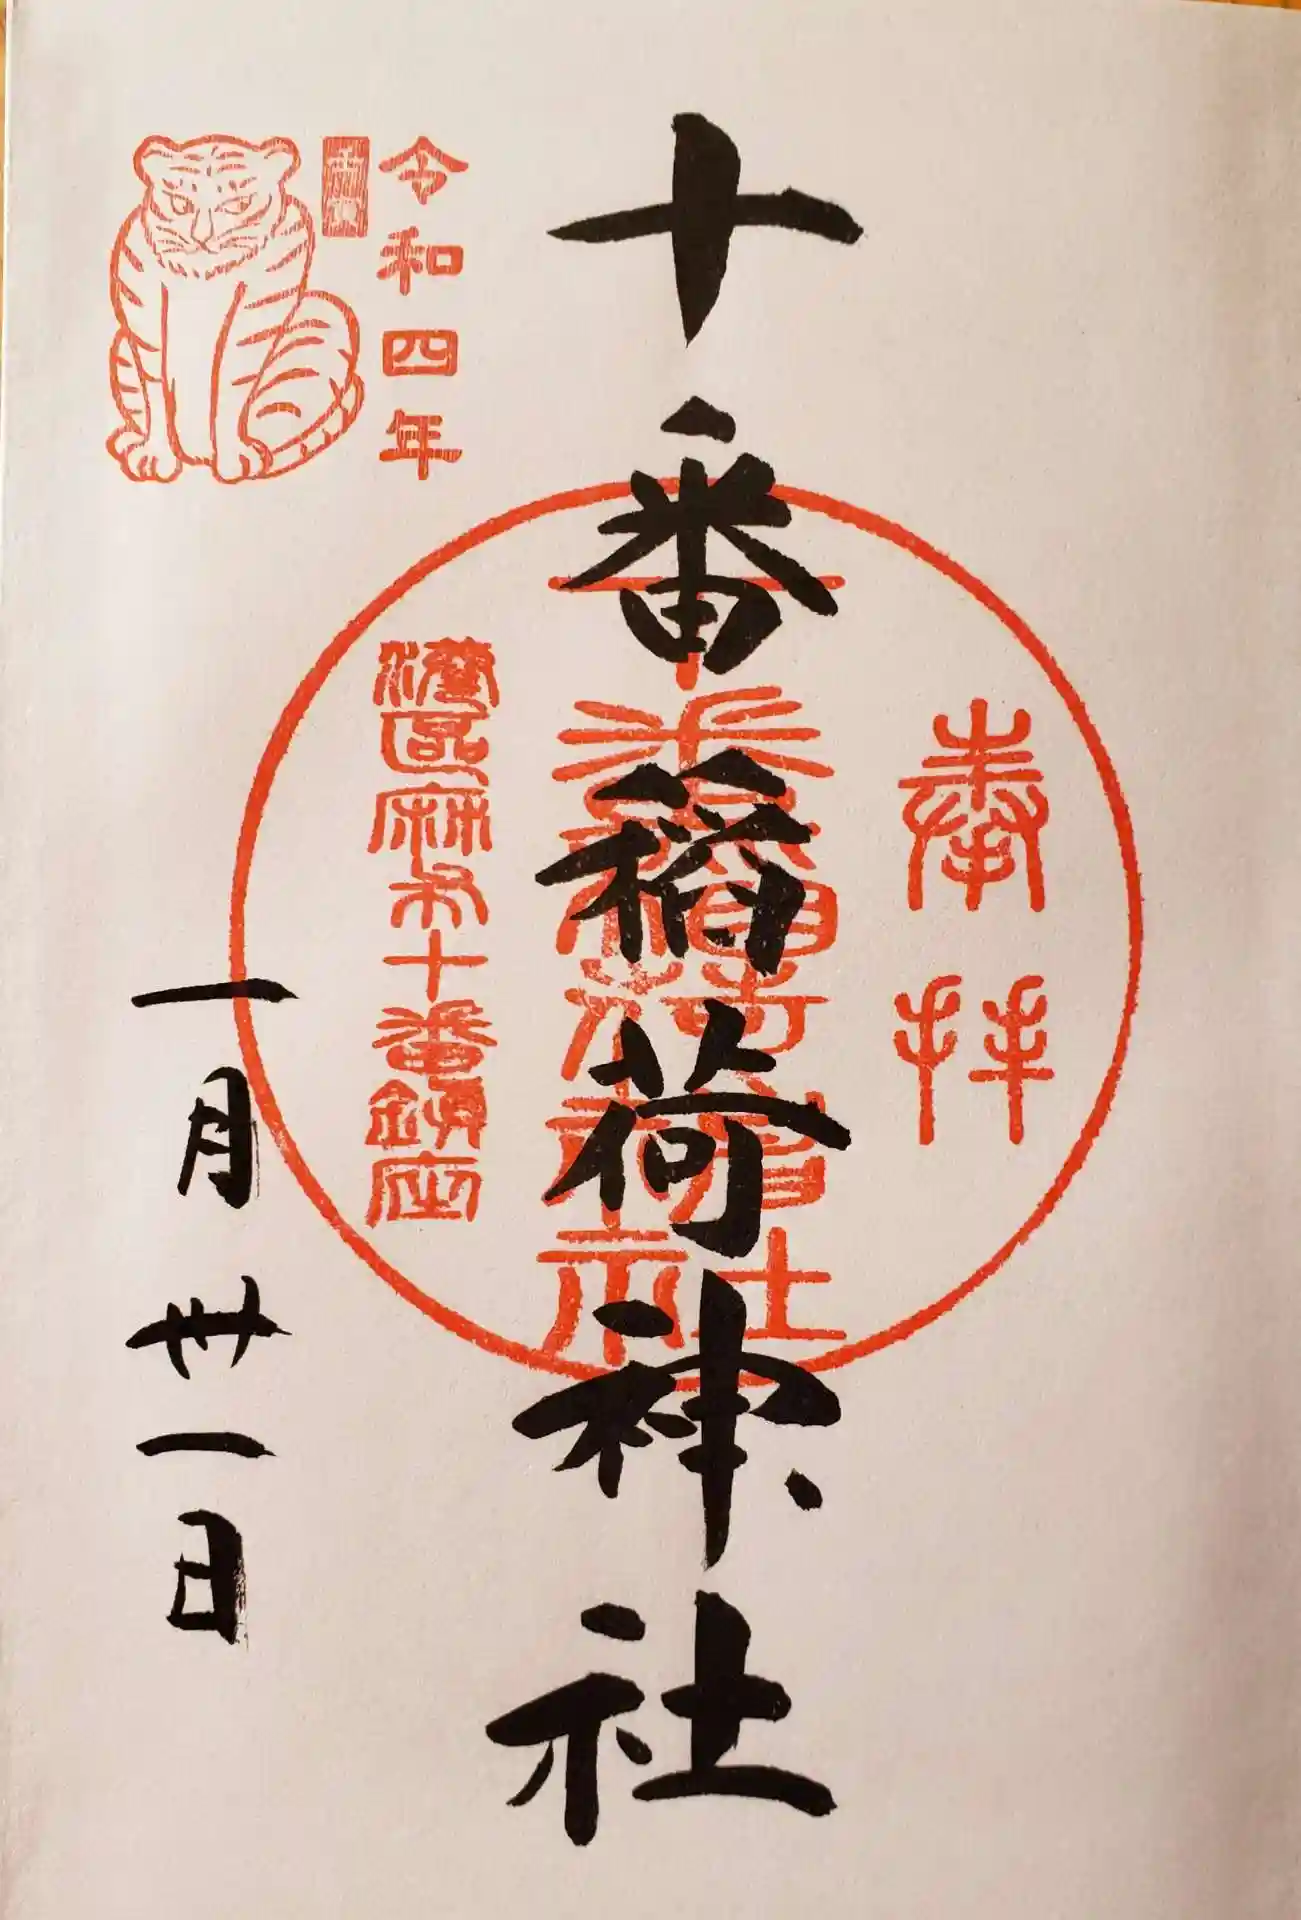 奉拝
十番稲荷神社
十番稲荷神社
港区麻布十番鎮座
令和四年
一月卅一日